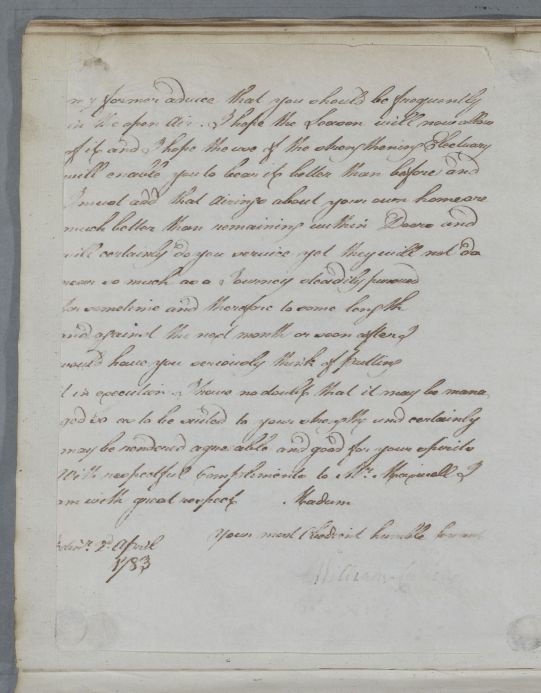 my former advice that you should be frequently
in the open Air. I hope the Season will now allow
of it and I hope the use of the strengthening Electuary
will enable you to bear it better than before and
I must add that airings about your own home are
much better than remaining within Doors and
will certainly do you service yet they will not do
near so much as a Journey steadily pursued
for sometime and therefore to some length
and against the next month or soon after I
would have you seriously think of putting
it in execution. I have no doubt that it may be mana
ged so as to be suited to your strength and certainly
may be rendered agreeable and good for your spirits
With respectful Compliments to Mr. Maxwell I
am with great respect Madam
Your most Obedient humble
2d. April
1783
William